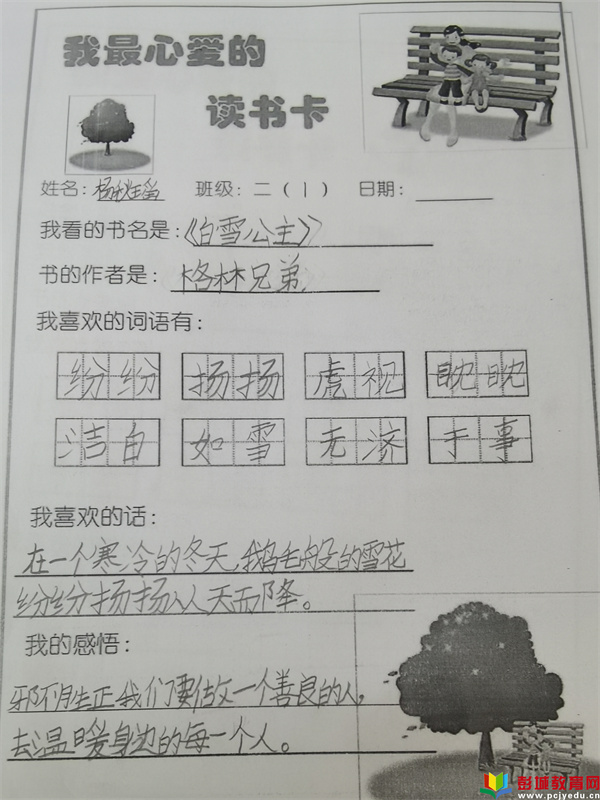 我最心爱的
读书卡
姓名: 班级:二(1) 日期:
我看的书名是:《白雪公主》
书的作者是:格林兄弟
我喜欢的词语有:
纷纷 扬扬 虎视 眈眈
洁白 如雪 无济 于事
我喜欢的话:
在一个寒冷的冬天,鹅毛般的雪花
纷纷扬扬从天而降。
我的感悟:
邪不胜正我们要做一个善良的人,
去温暖身边的每一个人。
彭城教育网
www.pcjyedu.cn